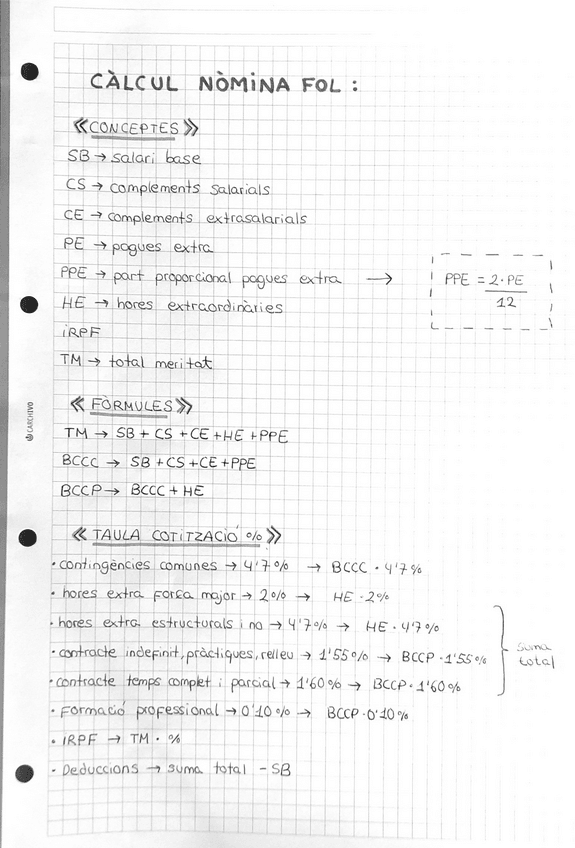 CÀLCUL NÒMINA FOL :
《CONCEPTES》
SB → salari base
CS → complements salarials
CE → complements extrasalarials
PE → pagues extra
PPE → part proporcional pagues extra →
PPE = 2·PE
12
HE → hores extraordinàries
iRPF
TM → total meritat
CARCHIVO
《FÒRMULES》
TM → SB + CS + CE + HE + PPE
BCCC → SB + CS + CE + PPE
BCCP → BCCC + HE
《TAULA COTITZACIÓ %》
· contingències comunes → 4'7% → BCCC · 4'7%
· hores extra força major → 2% → HE · 2%
· hores extra estructurals i no → 4'7% → HE · 4'7%
· contracte indefinit, pràctiques, relleu → 1'55% → BCCP · 1'55%
suma
total
· contracte temps complet i parcial → 1'60% → BCCP · 1'60%
· Formació professional → 0'10% → BCCP · 0'10%
· IRPF → TM · %
· Deduccions → suma total - SB